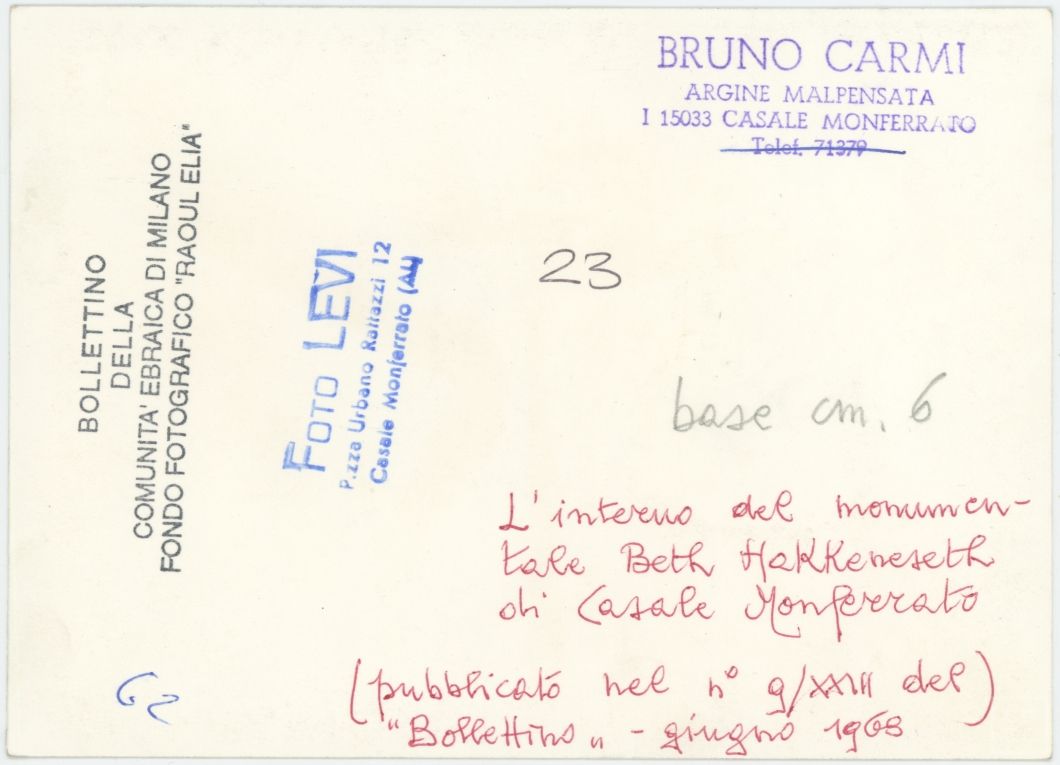 BRUNO CARMI
ARGINE MALPENSATA
I 15033 CASALE MONFERRATO
Telef. 71379
BOLLETTINO
DELLA
COMUNITA' EBRAICA DI MILANO
FONDO FOTOGRAFICO "RAOUL ELIA"
FOTO LEVI
P.zza Urbano Rattazzi 12
Casale Monferrato (AL)
23
base cm. 6
L'interno del monumen-
tale Beth HaKKeneseth
di Casale Monferrato
(pubblicato nel n° 9/XXIII del)
"Bollettino" - giugno 1968